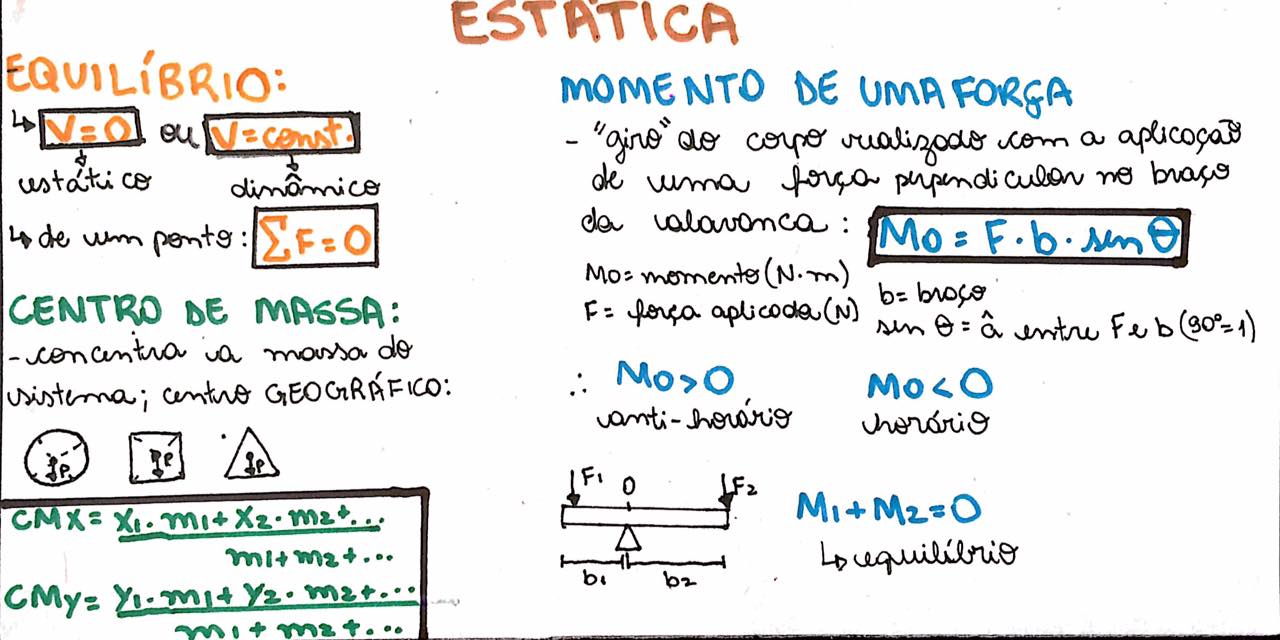 ESTÁTICA
EQUILÍBRIO:
↳ V=0 ou V=const.
estático dinâmico
↳ de um ponto: ∑F=0
CENTRO DE MASSA:
- concentra a massa do
sistema; centro GEOGRÁFICO:
P P P
CMX = X1·m1+X2·m2+...
m1+m2+...
CMy = Y1·m1+Y2·m2+...
m1+m2+...
MOMENTO DE UMA FORÇA
- "giro" do corpo realizado com a aplicação
de uma força perpendicular no braço
da alavanca: Mo = F·b·sen θ
Mo = momento (N·m)
F = força aplicada (N)
b = braço
sen θ = â entre F e b (90°=1)
∴ Mo>0 Mo<0
anti-horário horário
F1 O F2
b1 b2
M1+M2=0
↳ equilíbrio